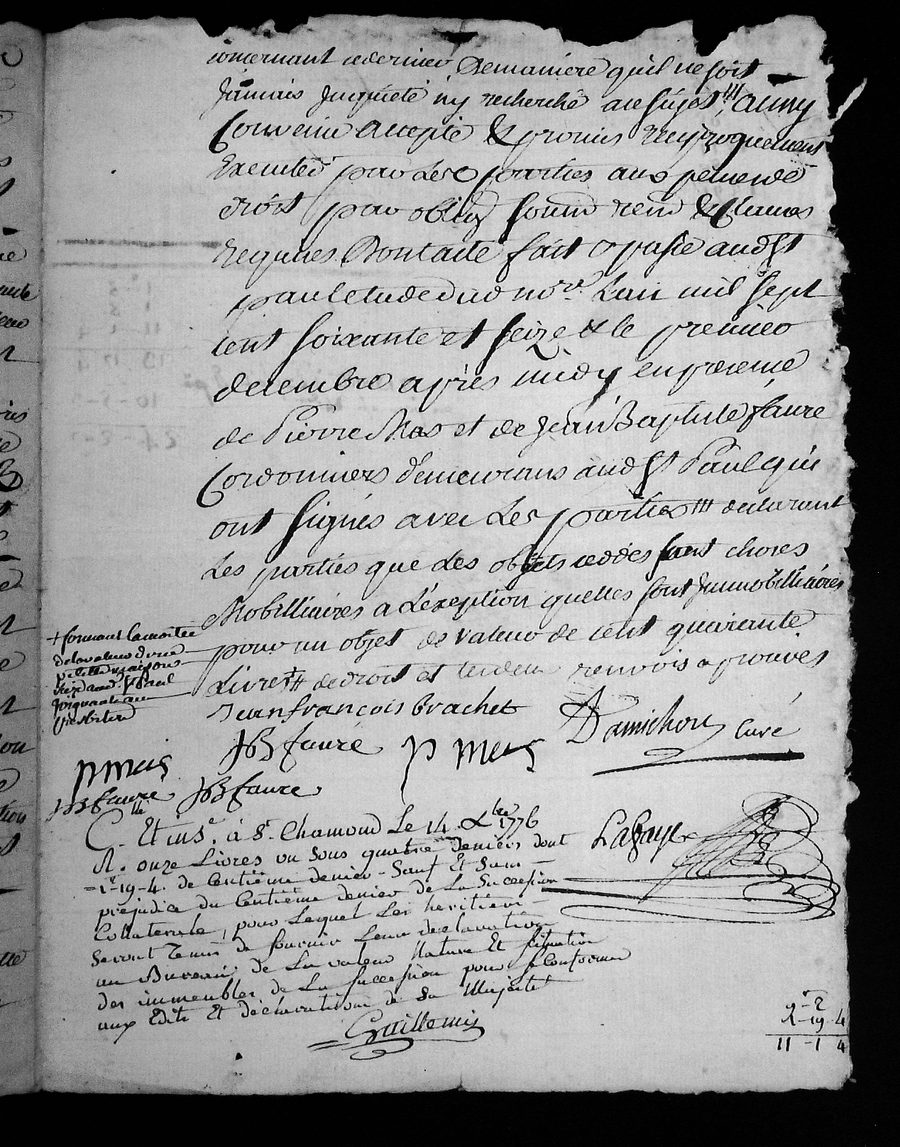 concernant ce dernier Demaniere quil ne soit
Jamais Inquieté ny recherché a ce sujet, ainsy
Convenu accepté & promis reciproquement
Executer par Les parties aux peines de
droit par oblig soum renon & Clauses
requises Dont acte fait & passé aud St
paul etude dud nore Lan mil Sept
cent soixante et seize & le premier
decembre apres midy en presence
de Pierre Mas et de Jean Baptiste faure
Cordonniers demeurans aud St Paul qui
ont signés avec Les parties declarant
Les parties que des objets cedés sont choses
Mobilliaires a L'exeption quelles sont Immobilliaires
pour un objet de valeur de cent quarante
Livres de droit et renvois aprouvés
+ formant la moitié
de la valeur d'une
petite maison
aud St Paul
presbitere
Jean françois brachet
Damichon curé
p mas
JB faure
p mas
JB faure
JB faure
Lafaye
C. Et ins. à St. Chamond Le 14. Xbre 1776
R. onze Livres un Sous quatre deniers dont
1# 19-4. de Centième denier Sauf Et Sans
prejudice du Centième denier de La Succession
Collaterale, pour Lequel Les heritiers
Seront Tenus de fournir Leur declaration
au Bureau de La valeur Nature Et Situation
des immeubles de La succession pour se conformer
aux Edits Et déclarations de Sa Majesté
Guillemin
9-2
1-19-4
11-1-4